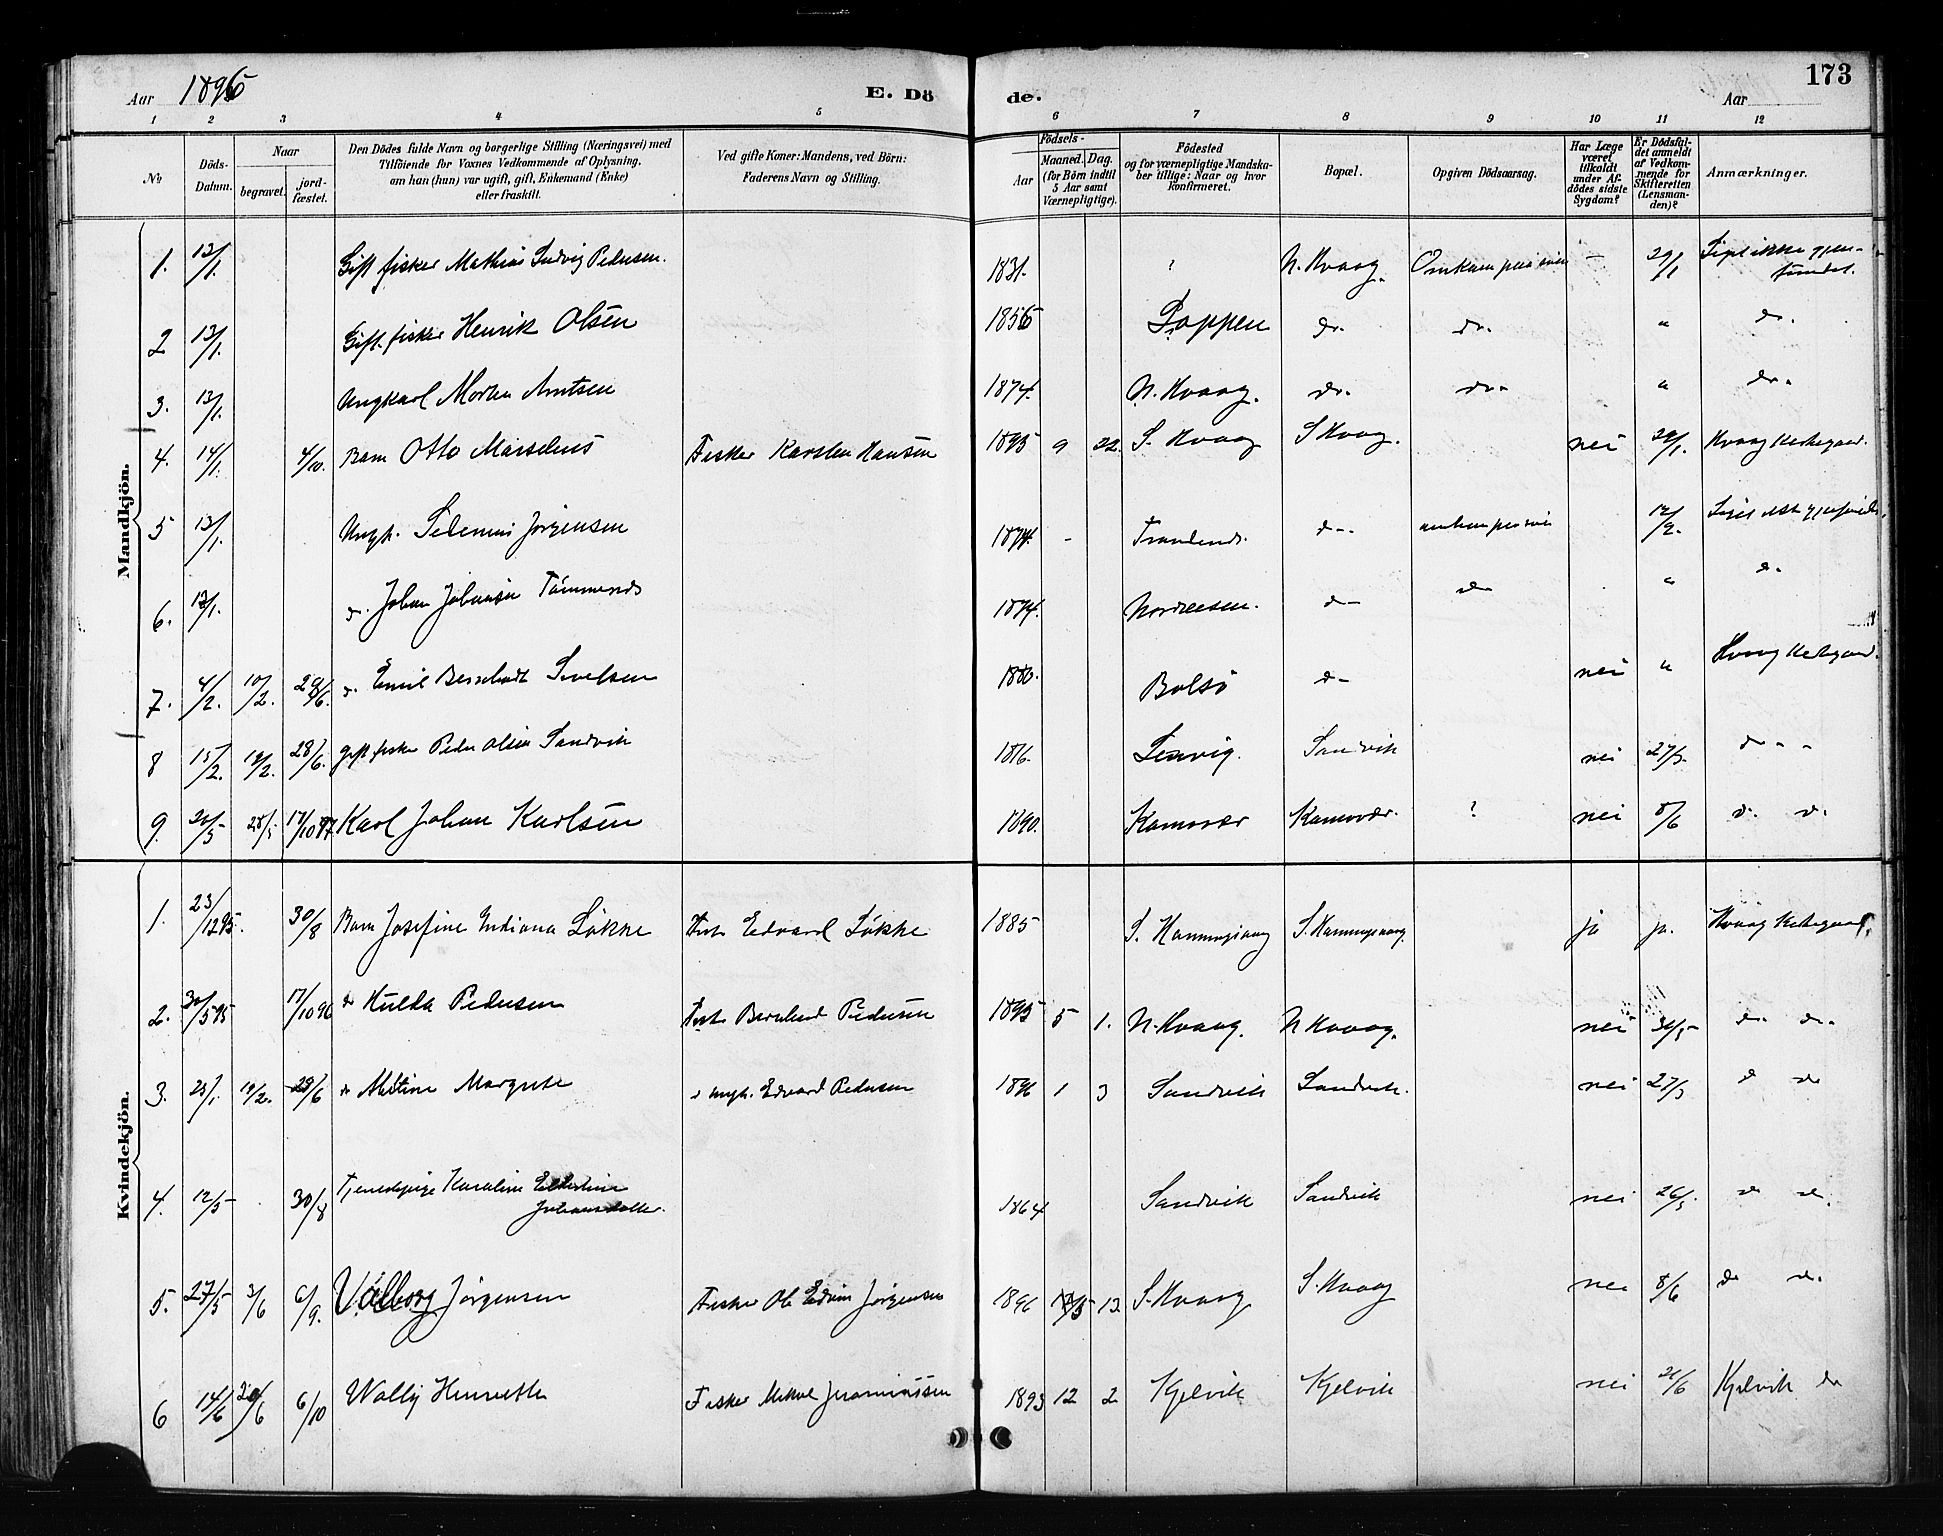 Aar 1896 E. Dö de. Aar 173
1 2 3 4 5 6 7 8 9 10 11 12
№ Döds-Datum. Naar begravet. jord-fæstet. Den Dödes fulde Navn og borgerlige Stilling (Næringsvei) med Tilföiende for Voxnes Vedkommende af Oplysning, om han (hun) var ugift, gift, Enkemand (Enke) eller fraskilt. Ved gifte Koner: Mandens, ved Börn: Faderens Navn og Stilling. Födsels- Aar Maaned. Dag. (for Börn indtil 5 Aar samt Værnepligtige). Födested og for værnepligtige Mandskaber tillige: Naar og hvor konfirmeret. Bopæl. Opgiven Dödsaarsag. Har Læge været tilkaldt under Afdödes sidste Sygdom? Er Dödsfaldet anmeldt af Vedkommende for Skifteretten (Lensmanden)? Anmærkninger.
Mandkjön.
1. 13/1. Gift fisker Mathias Ludvig Pedersen. 1831. ? N. Kvaag. Omkom paa søen - 29/1
2 13/1. Gift fisker Henrik Olsen 1856 Loppen do. do. " do.
3. 13/1. Ungkarl Morten Arntsen 1874. N. Kvaag. do. do. " do.
4. 14/1. 4/10. Barn Otto Marselius Fisker Karsten Hansen 1895 9 22. S. Kvaag S Kvaag. nei 29/1. Kvaag Kirkegaard.
5 13/1. Ungk. Jørgensen 1874. - d- 12/2.
6. 13/1. d. Johan Johansen 1874. d- do " d.
7. 4/2. 10/2. 29/6. d. Emil 1880. Bolsö d- nei " Kvaag Kirkegaard.
8 15/2. 19/2. 28/6. gift fisker Peder Olsen Sandvik 1816. Lenvig. Sandvik nei 27/3. d - -
9. 20/5 25/5 17/10 97. Karl Johan Karlsen 1890. Kamøvær Kamøvær. ? nei 8/6 d. d.
Kvindekjön.
1. 23/12 95. 30/8 Barn Josefine Indiana Løkke Edvard Løkke 1885 S. S. ja ja. Kvaag Kirkegaard.
2. 30/5 95 17/10 96 do Hulda Pedersen Bernhard Pedersen 1895 5 1. N. Kvaag. N Kvaag. nei 30/5 d. do.
3. 25/1. 19/2. 29/6 d Margrete d ungk. Edvard Pedersen 1896 1 3 Sandvik Sandvik. nei 27/3 d do
4. 12/5 30/8 Tjenestepige Karoline
Johansdatter. 1864 Sandvik Sandvik nei 26/5 do do.
5. 27/5 3/6 6/9. Valborg Jørgensen Fisker Ole Edvin Jørgensen 1896 12 S. Kvaag S. Kvaag nei 8/6 do do.
6 14/6 20/6 6/10 Wally Henriette Fisker Mikal Jeramiassen 1893 12 2 Kjelvik Kjelvik nei 21/6 Kjelvik do